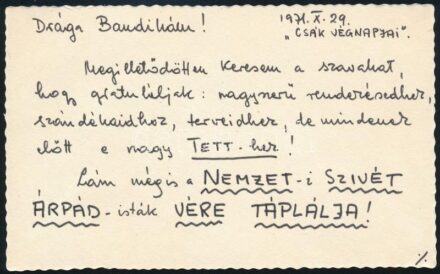 Drága Bandikám! 1971. X. 29.
„CSÁK VÉGNAPJAI".
Megilletődötten keresem a szavakat,
hogy gratuláljak: nagyszerű rendezésedhez,
szándékaidhoz, terveidhez, de mindenek
előtt e nagy TETT-hez!
Lám mégis a NEMZET-i SZIVÉT
ÁRPÁD-isták VÉRE TÁPLÁLJA!